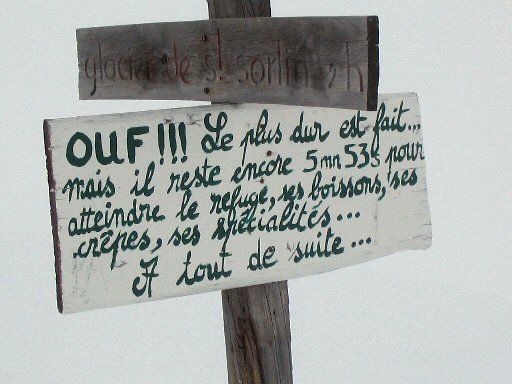 glacier de st sorlin 2h
OUF!!! Le plus dur est fait...
mais il reste encore 5mn 53s pour
atteindre le refuge, ses boissons, ses
crêpes, ses spécialités...
A tout de suite...